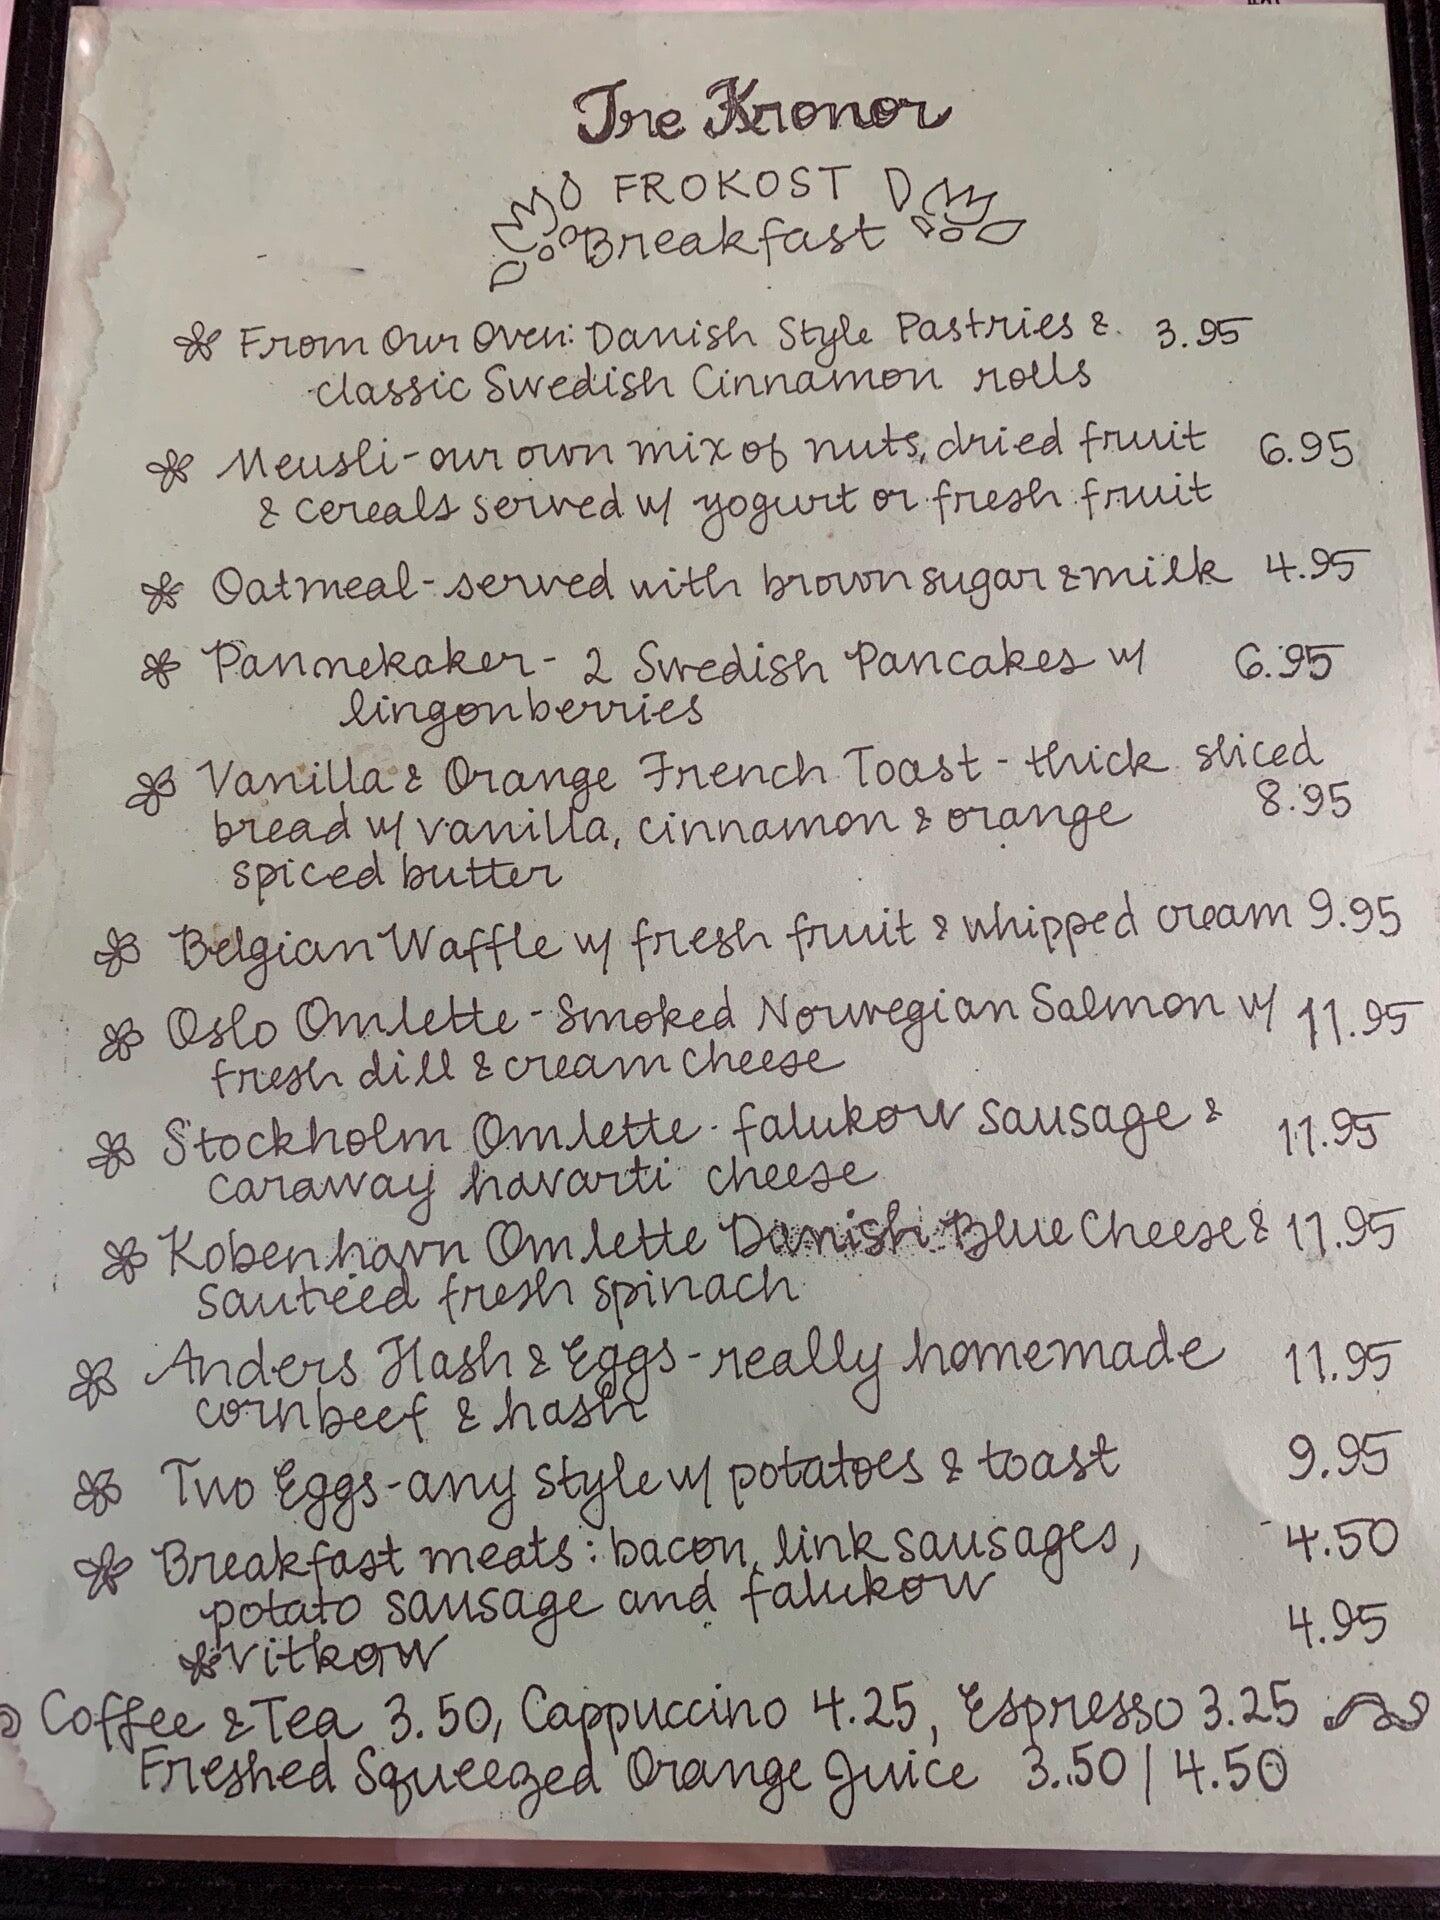 Tre Kronor
FROKOST
Breakfast
From Our Oven: Danish Style Pastries & 3.95
classic Swedish Cinnamon rolls
Meusli - our own mix of nuts, dried fruit 6.95
& cereals served w/ yogurt or fresh fruit
Oatmeal - served with brown sugar & milk 4.95
Pannekaker - 2 Swedish Pancakes w/ 6.95
lingonberries
Vanilla & Orange French Toast - thick sliced
bread w/ vanilla, cinnamon & orange 8.95
spiced butter
Belgian Waffle w/ fresh fruit & whipped cream 9.95
Oslo Omlette - Smoked Norwegian Salmon w/ 11.95
fresh dill & cream cheese
Stockholm Omlette - falukorv sausage & 11.95
caraway havarti cheese
Kobenhavn Omlette Danish Blue Cheese & 11.95
sautéed fresh spinach
Anders Hash & Eggs - really homemade 11.95
cornbeef & hash
Two Eggs - any style w/ potatoes & toast 9.95
Breakfast meats: bacon, link sausages, 4.50
potato sausage and falukorv
vitkorv 4.95
Coffee & Tea 3.50, Cappuccino 4.25, Espresso 3.25
Freshed Squeezed Orange Juice 3.50 | 4.50